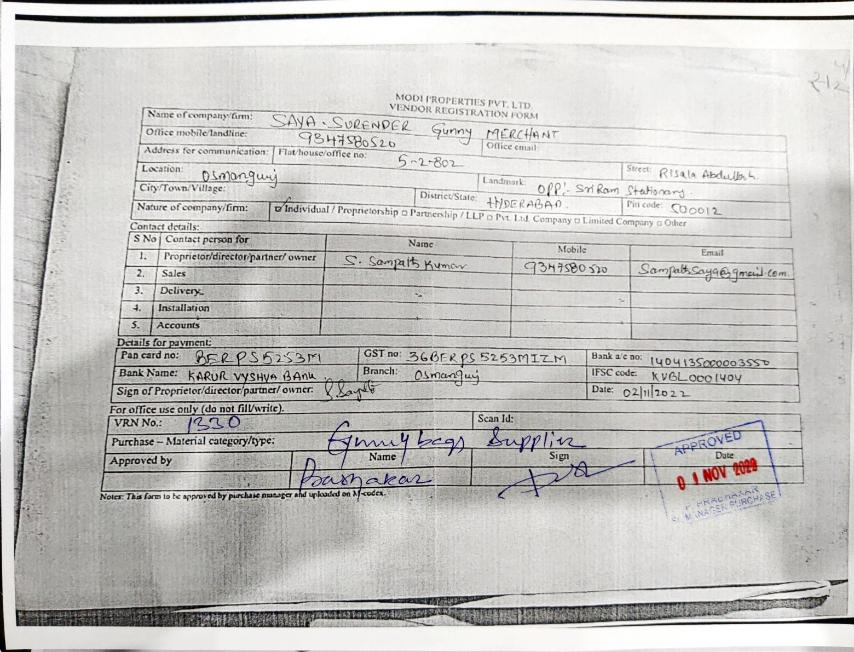 MODI PROPERTIES PVT. LTD.
VENDOR REGISTRATION FORM
Name of company/firm: SAYA. SURENDER Gunny MERCHANT
Office mobile/landline: 9347580520 Office email:
Address for communication: Flat/house/office no: 5-2-802 Street: Risala Abdullah.
Location: Osmangunj Landmark: OPP:- Sri Ram Stationary.
City/Town/Village: District/State: HYDERABAD. Pin code: 500012
Nature of company/firm: Individual / Proprietorship □ Partnership / LLP □ Pvt. Ltd. Company □ Limited Company □ Other
Contact details:
S No Contact person for Name Mobile Email
1. Proprietor/director/partner/ owner S. Sampath Kumar 9347580520
2. Sales
3. Delivery
4. Installation
5. Accounts
Details for payment:
Pan card no: BERPS5253M GST no: 36BERPS5253M1ZM Bank a/c no: 1404135000003550
Bank Name: KARUR VYSHYA BANK. Branch: Osmangunj IFSC code: KVBL0001404
Sign of Proprietor/director/partner/ owner: Date: 02/11/2022
For office use only (do not fill/write).
VRN No.: 1330 Scan Id:
Purchase – Material category/type: Gunny bags Supplier
Approved by Name Sign Date
Prabhakar
APPROVED
01 NOV
P. PRABHAKAR
Sr. MANAGER PURCHASE
Notes: This form to be approved by purchase manager and uploaded on M-codex.